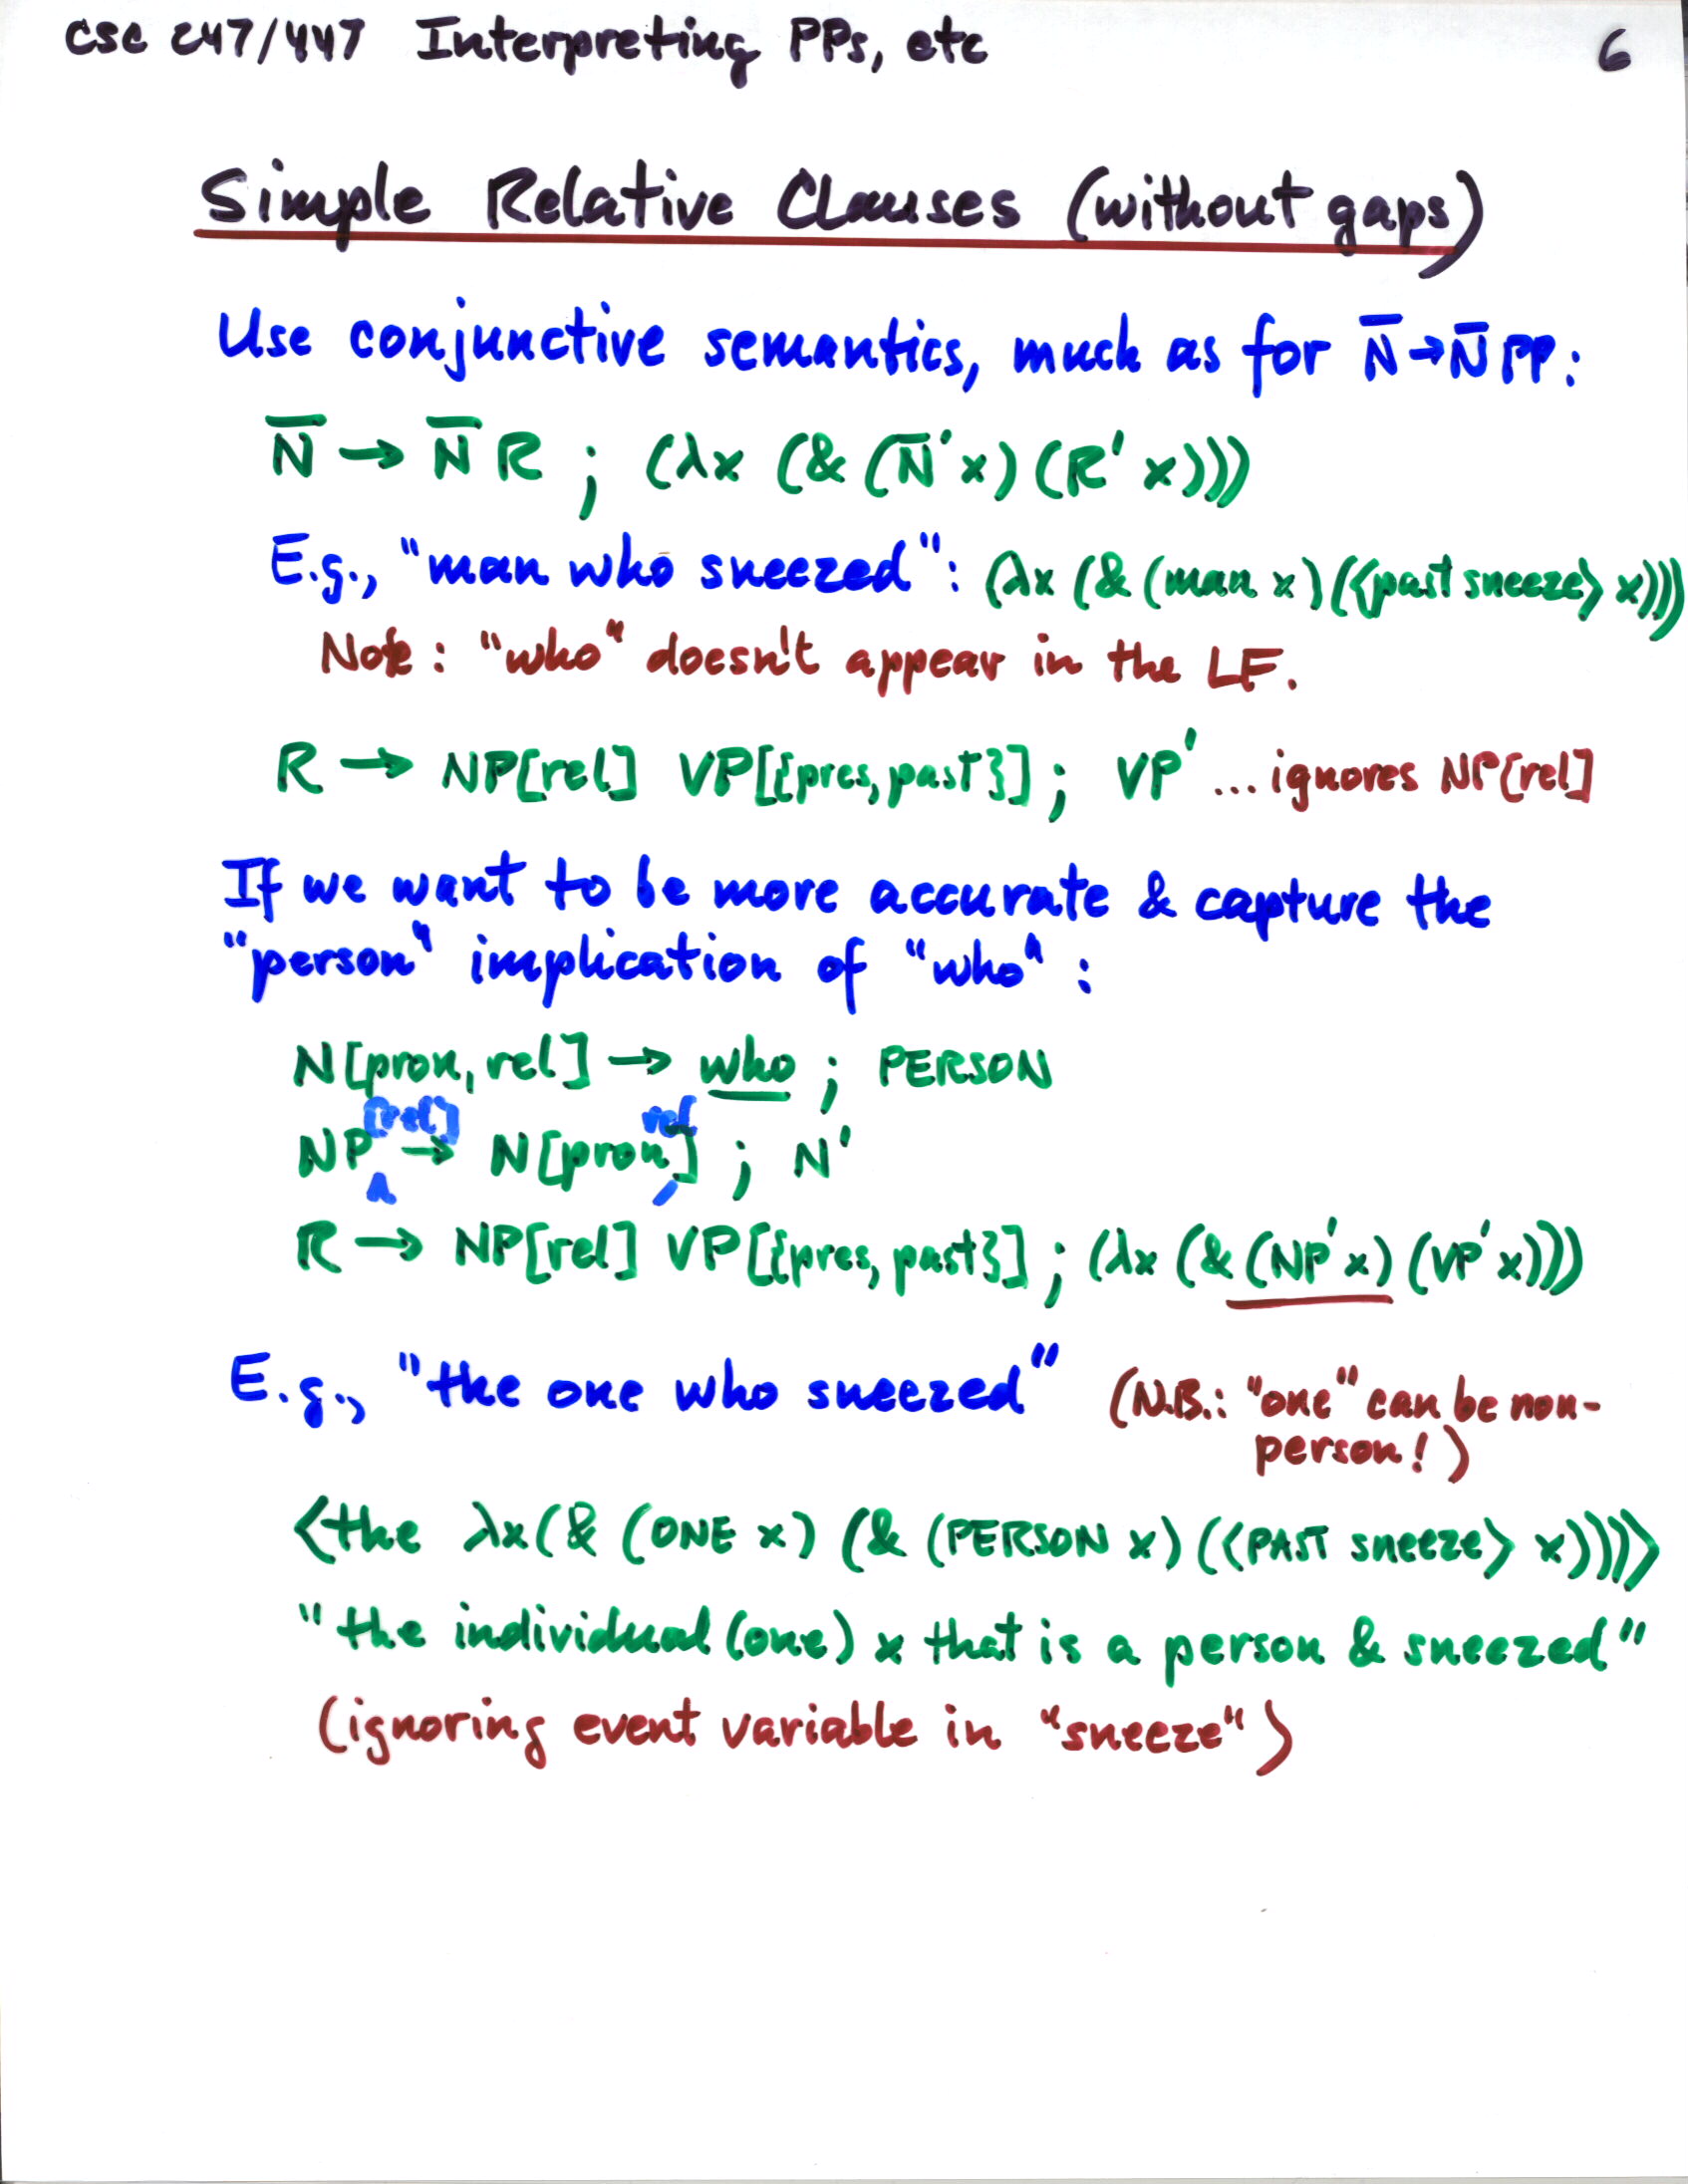 CSC 247/447 Interpreting PPs, etc 6
Simple Relative Clauses (without gaps)
Use conjunctive semantics, much as for N̄→N̄ PP:
N̄ → N̄ R ; (λx (& (N̄'x) (R' x)))
E.g., "man who sneezed": (λx (& (man x) (⟨past sneeze⟩ x)))
Note: "who" doesn't appear in the LF.
R → NP[rel] VP[{pres, past}]; VP' ... ignores NP[rel]
If we want to be more accurate & capture the
"person" implication of "who":
N[pron, rel] → who ; PERSON
NP[rel] → N[pron, rel] ; N'
R → NP[rel] VP[{pres, past}] ; (λx (& (NP'x) (VP'x)))
E.g., "the one who sneezed" (N.B.: "one" can be non-
person!)
⟨the λx(& (ONE x) (& (PERSON x) (⟨PAST sneeze⟩ x))))⟩
"the individual (one) x that is a person & sneezed"
(ignoring event variable in "sneeze")